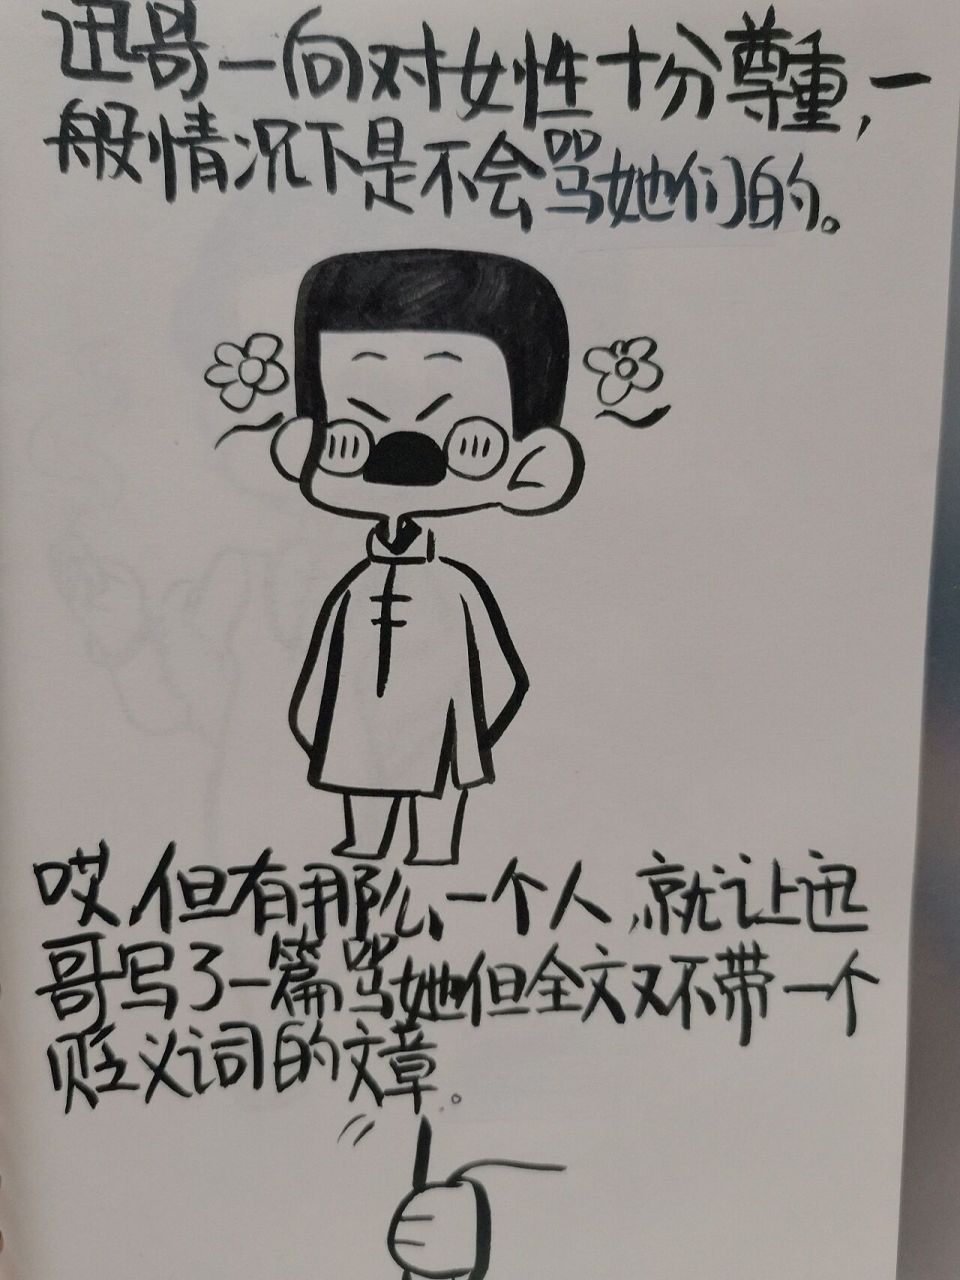 迅哥一向对女性十分尊重,一
般情况下是不会骂她们的。
哎,但有那么一个人,就让迅
哥写了一篇骂她但全文又不带一个
贬义词的文章。